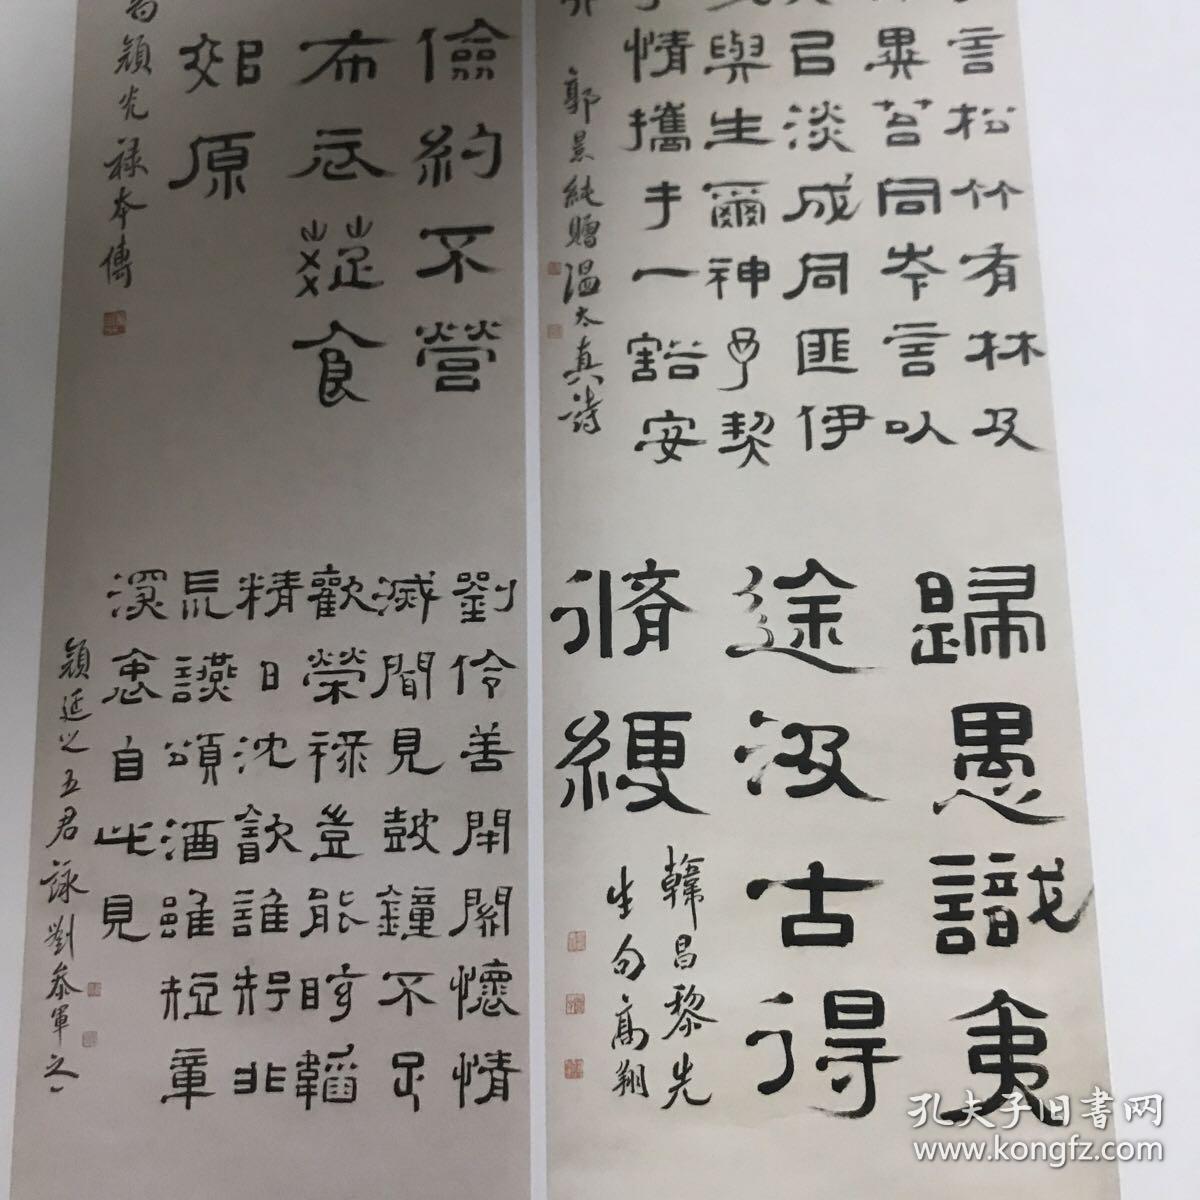 言松竹有林及
異苔同岑言以
以淡成同匪伊
與生爾神予契
情攜手一豁安
郭景純贈温太真詩
歸愚識夷
途汲古得
脩綆
韓昌黎先
生句高翔
儉約不營
布衣蔬食
郊原
顏光祿本傳
劉伶善閉關懷情
滅聞見鼓鐘不足
歡榮祿豈能眩韜
精日沈飲誰知非
荒讌頌酒雖短章
深衷自此見
顏延之五君詠劉參軍之一
孔夫子旧书网
www.kongfz.com